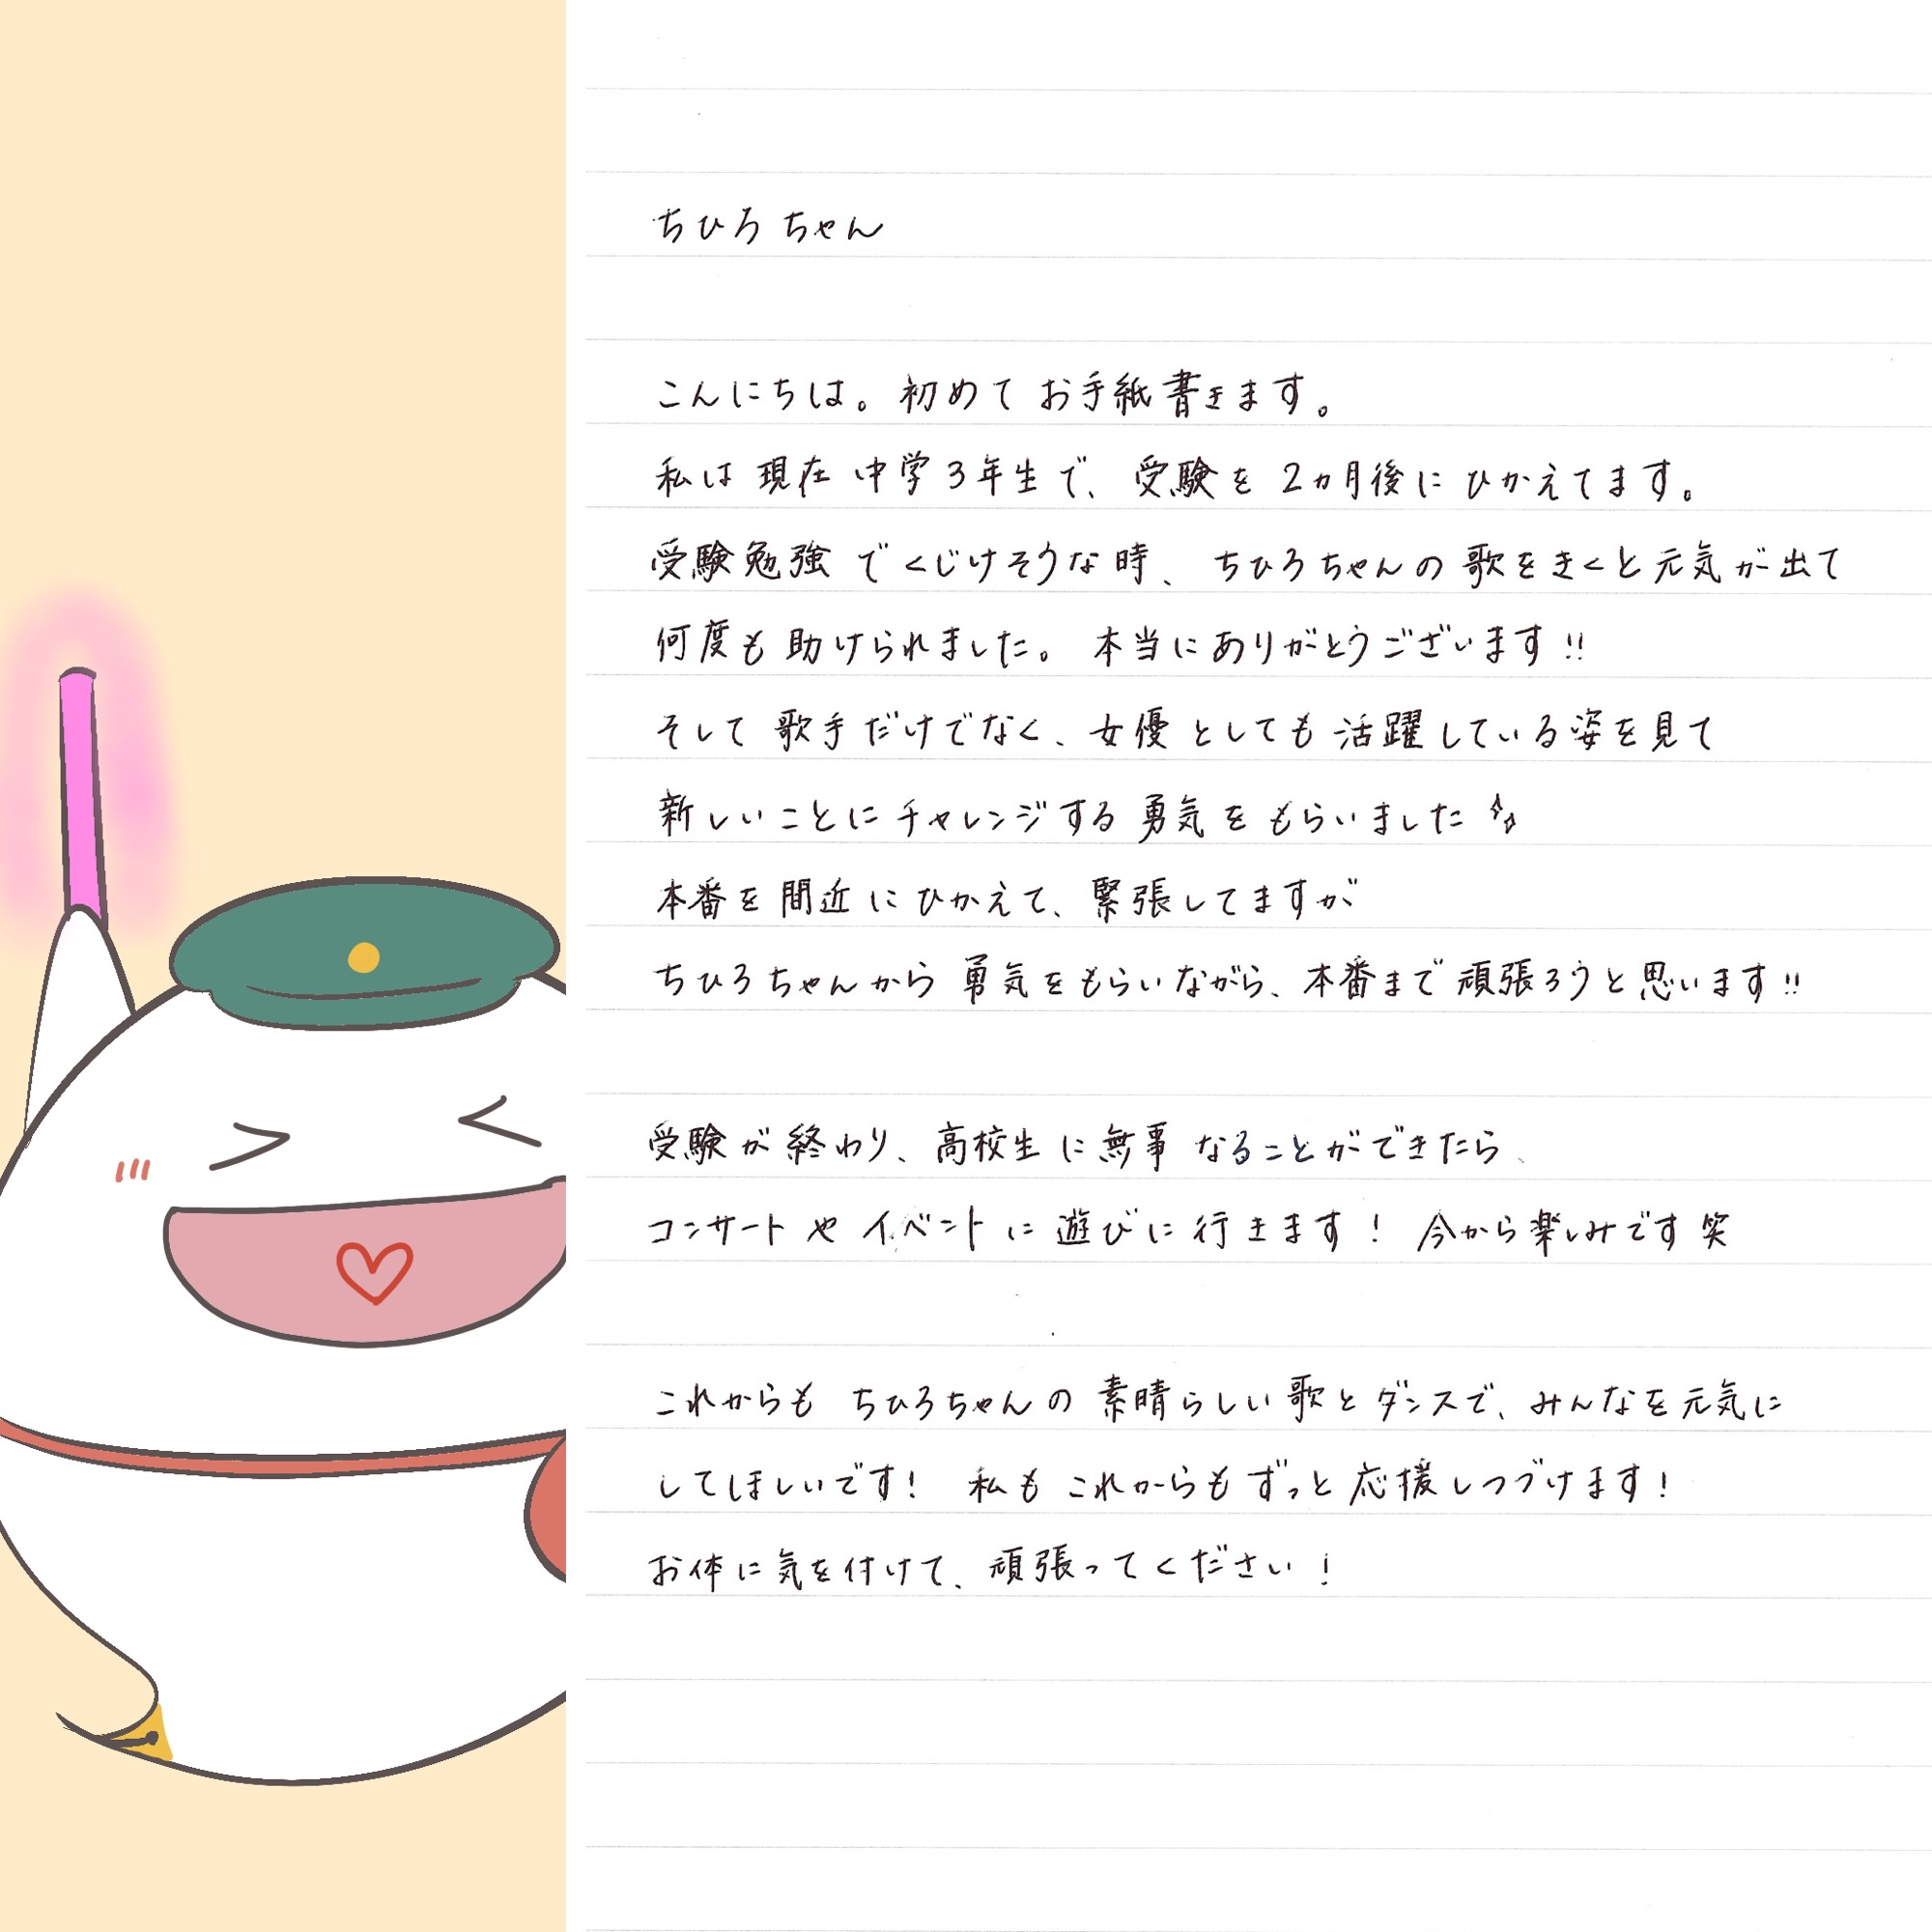 ちひろちゃん
こんにちは。初めてお手紙書きます。
私は現在中学3年生で、受験を2ヵ月後にひかえてます。
受験勉強でくじけそうな時、ちひろちゃんの歌をきくと元気が出て
何度も助けられました。本当にありがとうございます!!
そして歌手だけでなく、女優としても活躍している姿を見て
新しいことにチャレンジする勇気をもらいました✨
本番を間近にひかえて、緊張してますが
ちひろちゃんから勇気をもらいながら、本番まで頑張ろうと思います!!
受験が終わり、高校生に無事なることができたら、
コンサートやイベントに遊びに行きます！今から楽しみです笑
これからもちひろちゃんの素晴らしい歌とダンスで、みんなを元気に
してほしいです！私もこれからもずっと応援しつづけます！
お体に気を付けて、頑張ってください！